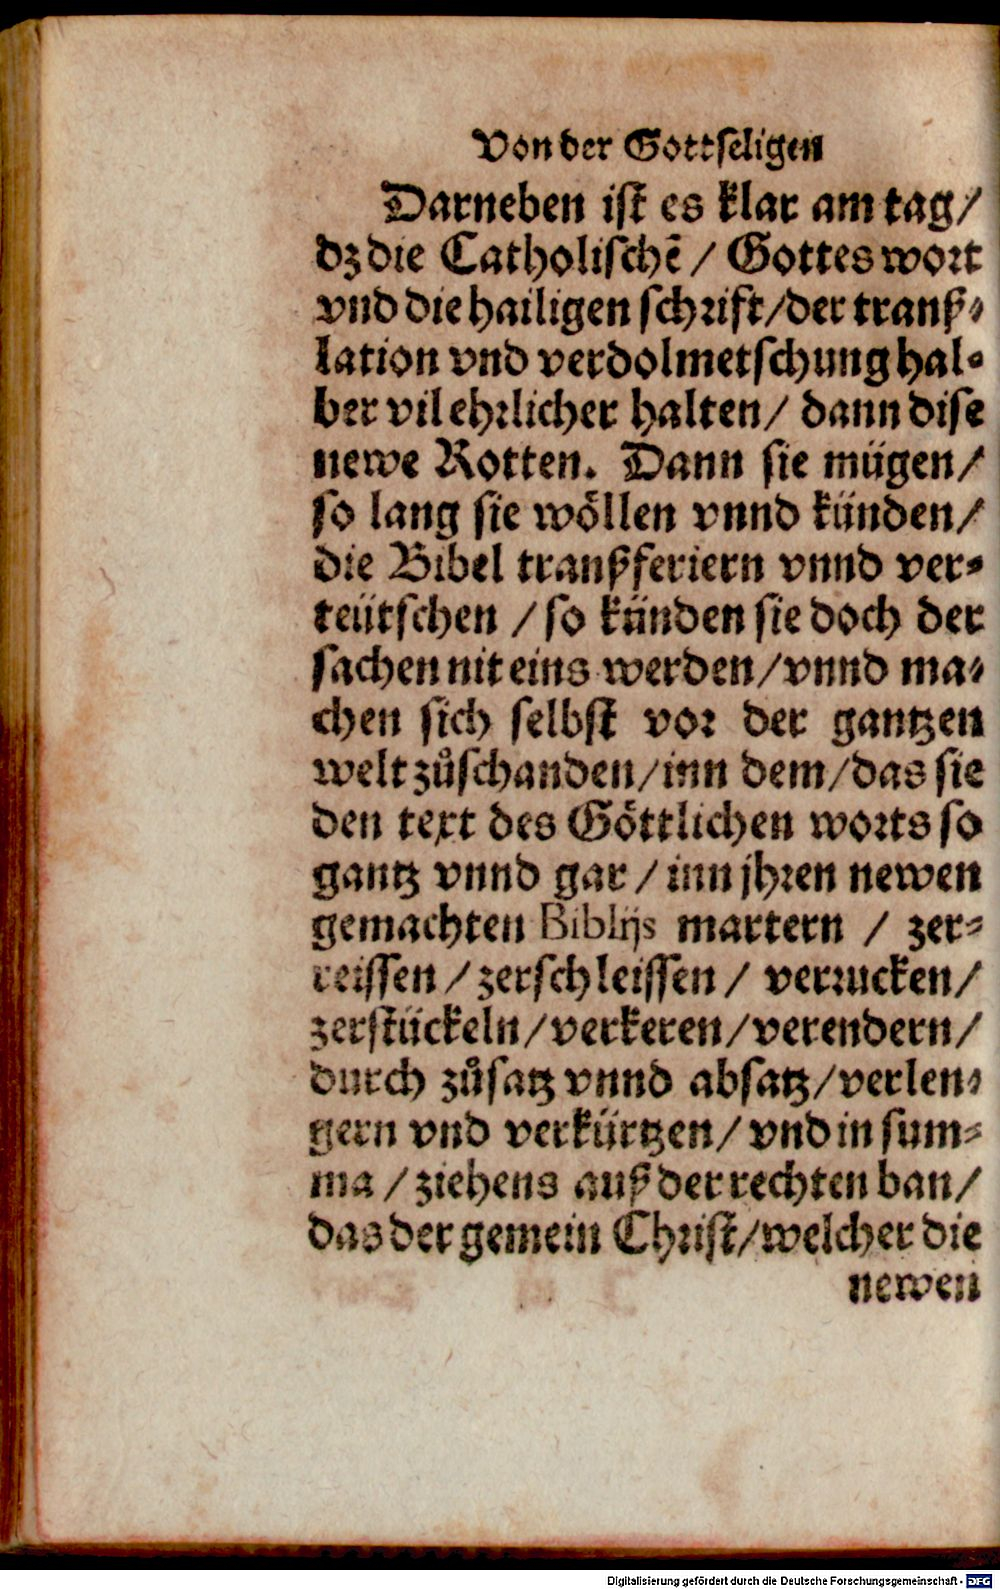 Von der Gottseligen
Darneben ist es klar am tag/
dz die Catholischẽ / Gottes wort
vnd die hailigen schrift/der tranß⸗
lation vnd verdolmetschung hal⸗
ber vil ehrlicher halten/ dann dise
newe Rotten. Dann sie mügen/
so lang sie wöllen vnnd künden/
die Bibel tranßferiern vnnd ver⸗
teütschen / so künden sie doch der
sachen nit eins werden/vnnd ma⸗
chen sich selbst vor der gantzen
welt zůschanden/inn dem/das sie
den text des Göttlichen worts so
gantz vnnd gar / inn jhren newen
gemachten Biblijs martern / zer⸗
reissen / zerschleissen / verrucken/
zerstückeln/verkeren/verendern/
durch zůsatz vnnd absatz/verlen⸗
gern vnd verkürtzen/ vnd in sum⸗
ma / ziehens auß der rechten ban/
das der gemein Christ/welcher die
newen
Digitalisierung gefördert durch die Deutsche Forschungsgemeinschaft - DFG